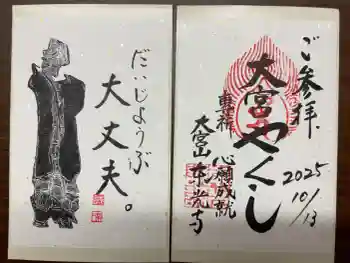 だいじょうぶ
大丈夫。
ご参拝
2025
10/13
大宮やくし
心願成就
大宮山東光寺